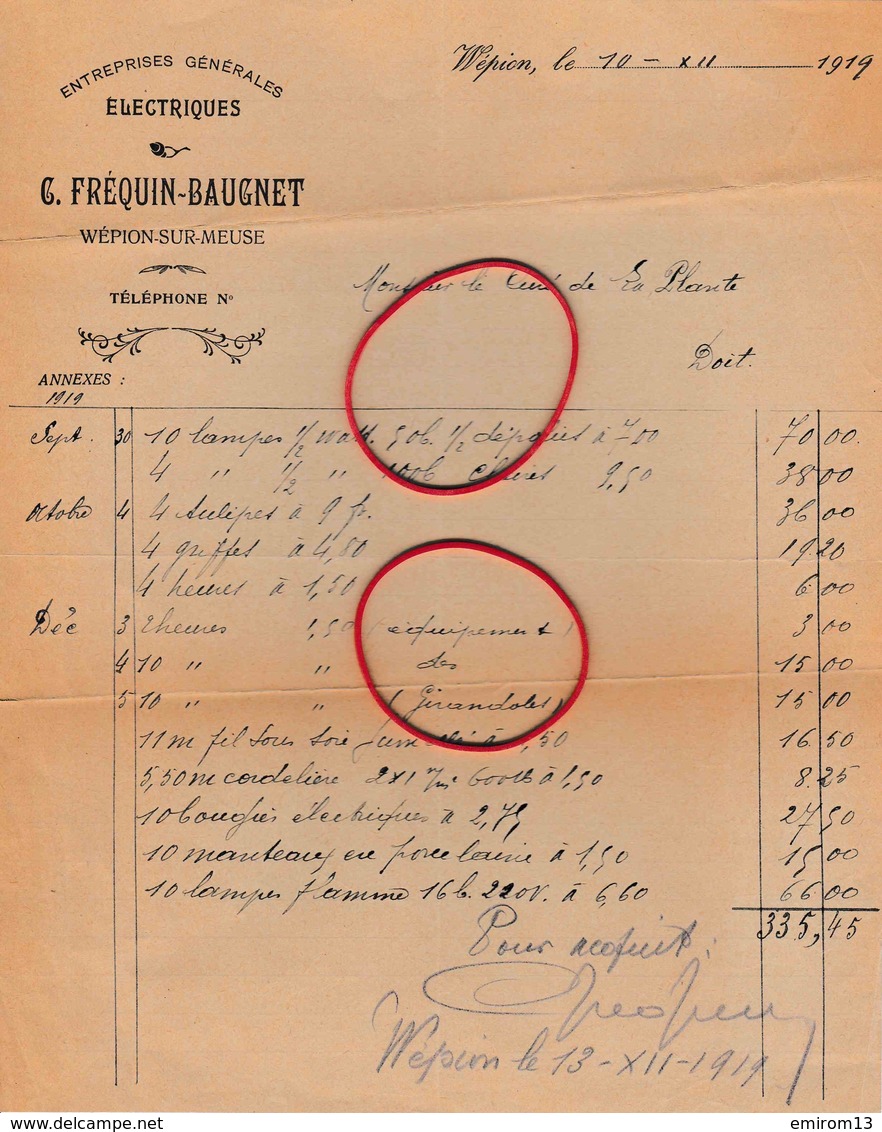 Wépion, le 10 - XII 1919
ENTREPRISES GÉNÉRALES
ÉLECTRIQUES
C. FRÉQUIN-BAUGNET
WÉPION-SUR-MEUSE
TÉLÉPHONE No
Monsieur le Curé de La Plante
Doit.
ANNEXES :
1919
Sept. 30 10 lampes 1/2 watt. 50b. 1/2 dépolies à 7,00 70 00.
4 " 1/2 " 100b claires 9,50 38 00
Octobre 4 4 tulipes à 9 fr. 36 00
4 griffes à 4,80 19 20
4 heures à 1,50 6 00
Déc 3 2 heures 1,50 (équipement) 3 00
4 10 " " des 15 00
5 10 " " (Girandoles) 15 00
11 m fil sous soie à 1,50 16 50
5,50 m cordelière 2x1 m/m 600 à 1,50 8 25
10 bougies électriques à 2,75 27 50
10 manteaux en porcelaine à 1,50 15 00
10 lampes flamme 16 b. 220 v. à 6,60 66 00
335,45
Pour acquit :
Wépion le 13-XII-1919
delcampe.net
emirom13